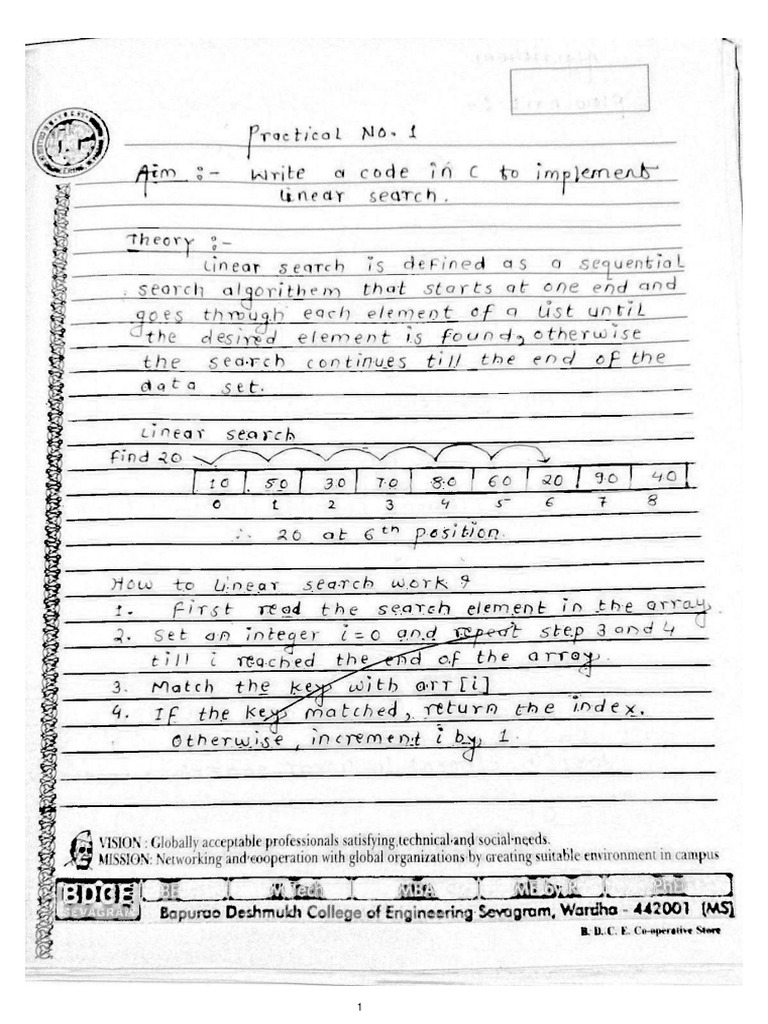 Practical No. 1
Aim :- Write a code in C to implement
linear search.
Theory :-
Linear search is defined as a sequential
search algorithem that starts at one end and
goes through each element of a list until
the desired element is found, otherwise
the search continues till the end of the
data set.
Linear search
find 20
10 50 30 70 80 60 20 90 40
0 1 2 3 4 5 6 7 8
∴ 20 at 6th position.
How to Linear search work ?
1. First read the search element in the array.
2. Set an integer i=0 and repeat step 3 and 4
till i reached the end of the array.
3. Match the key with arr[i]
4. If the key matched, return the index.
Otherwise, increment i by 1.
VISION : Globally acceptable professionals satisfying technical and social needs.
MISSION: Networking and cooperation with global organizations by creating suitable environment in campus
BDCE BE M.Tech MBA ME by R PhD
SEVAGRAM
Bapurao Deshmukh College of Engineering Sevagram, Wardha - 442001 (MS)
B. D. C. E. Co-operative Store
1